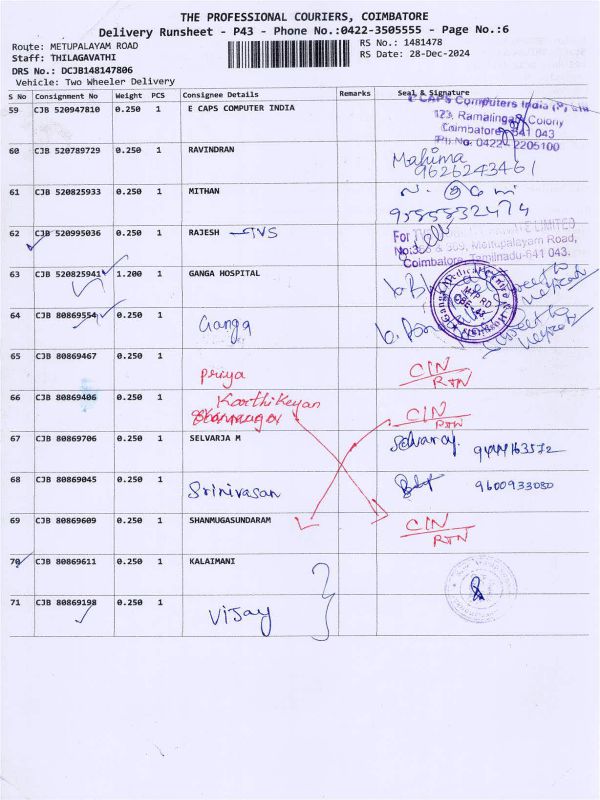 THE PROFESSIONAL COURIERS, COIMBATORE
Delivery Runsheet - P43 - Phone No.:0422-3505555 - Page No.:6
Route: METUPALAYAM ROAD
RS No.: 1481478
Staff: THILAGAVATHI
RS Date: 28-Dec-2024
DRS No.: DCJB148147806
Vehicle: Two Wheeler Delivery
S No Consignment No Weight PCS Consignee Details Remarks Seal & Signature
59 CJB 520947810 0.250 1 E CAPS COMPUTER INDIA
E CAPS Computers India (P) Ltd
123, Ramalinga Colony
Coimbatore 641 043
Ph No. 0422 2205100
60 CJB 520789729 0.250 1 RAVINDRAN Mahima
9626243461
61 CJB 520825933 0.250 1 MITHAN
9585832474
62 CJB 520995036 0.250 1 RAJESH - TVS
For LIMITED
Mettupalayam Road,
Coimbatore, Tamilnadu-641 043.
63 CJB 520825941 1.200 1 GANGA HOSPITAL
64 CJB 80869554 0.250 1 Ganga
65 CJB 80869467 0.250 1 Priya CIN
RTN
66 CJB 80869406 0.250 1 Karthikeyan CIN
RTN
67 CJB 80869706 0.250 1 SELVARJA M Selvaraj
68 CJB 80869045 0.250 1 Srinivasan 9600933080
69 CJB 80869609 0.250 1 SHANMUGASUNDARAM CIN
RTN
70 CJB 80869611 0.250 1 KALAIMANI
71 CJB 80869198 0.250 1 Vijay